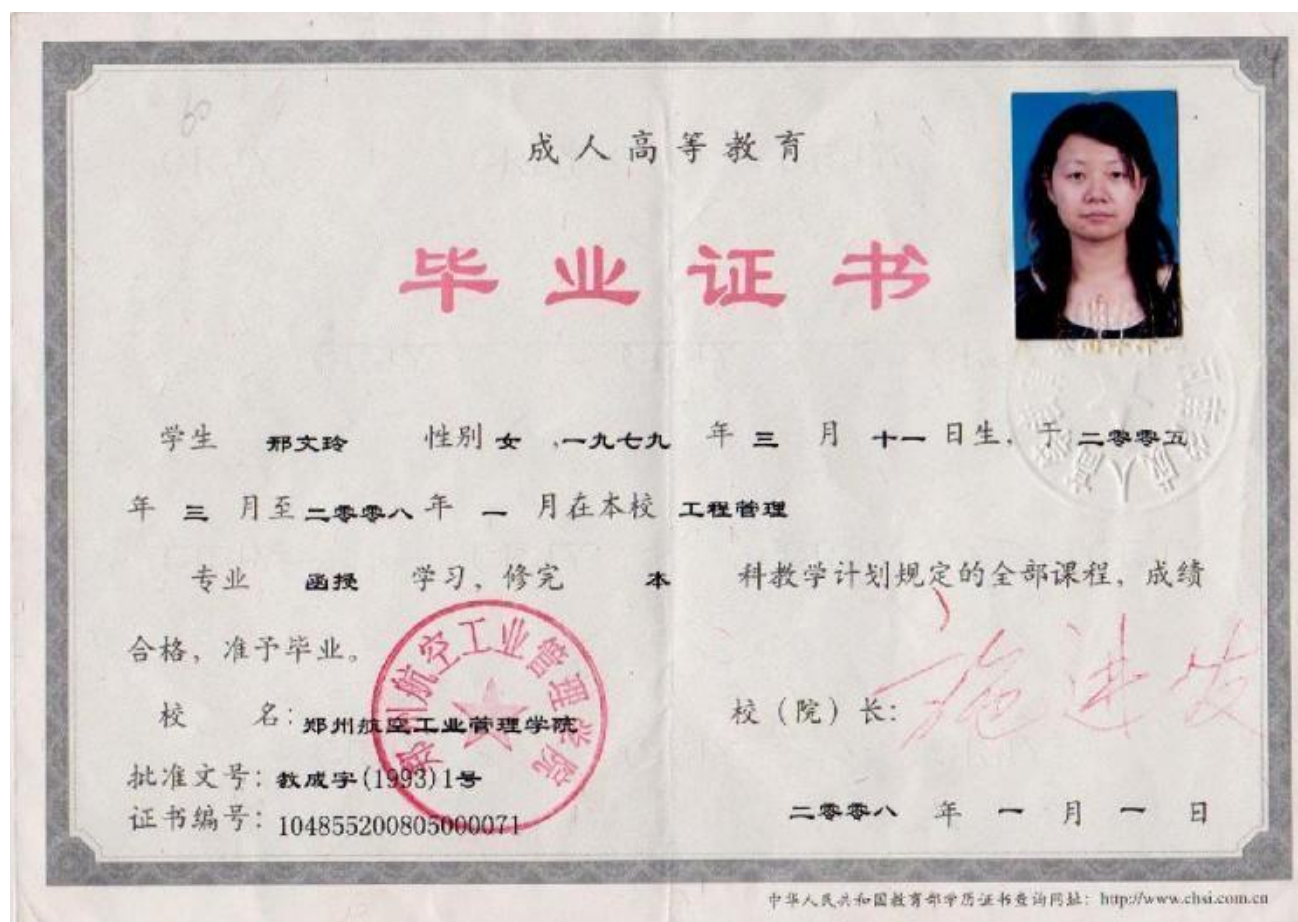 成人高等教育
毕业证书
学生 邢文玲 性别 女 ,一九七九 年 三 月 十一 日生, 于 二零零五
年 三 月至 二零零八 年 一 月在本校 工程管理
专业 函授 学习, 修完 本 科教学计划规定的全部课程, 成绩
合格, 准予毕业。
校 名: 郑州航空工业管理学院
校 (院) 长: 施进发
郑州航空工业管理学院
批准文号: 教成字(1993)1号
证书编号: 104855200805000071
二零零八 年 一 月 一 日
中华人民共和国教育部学历证书查询网址: http://www.chsi.com.cn